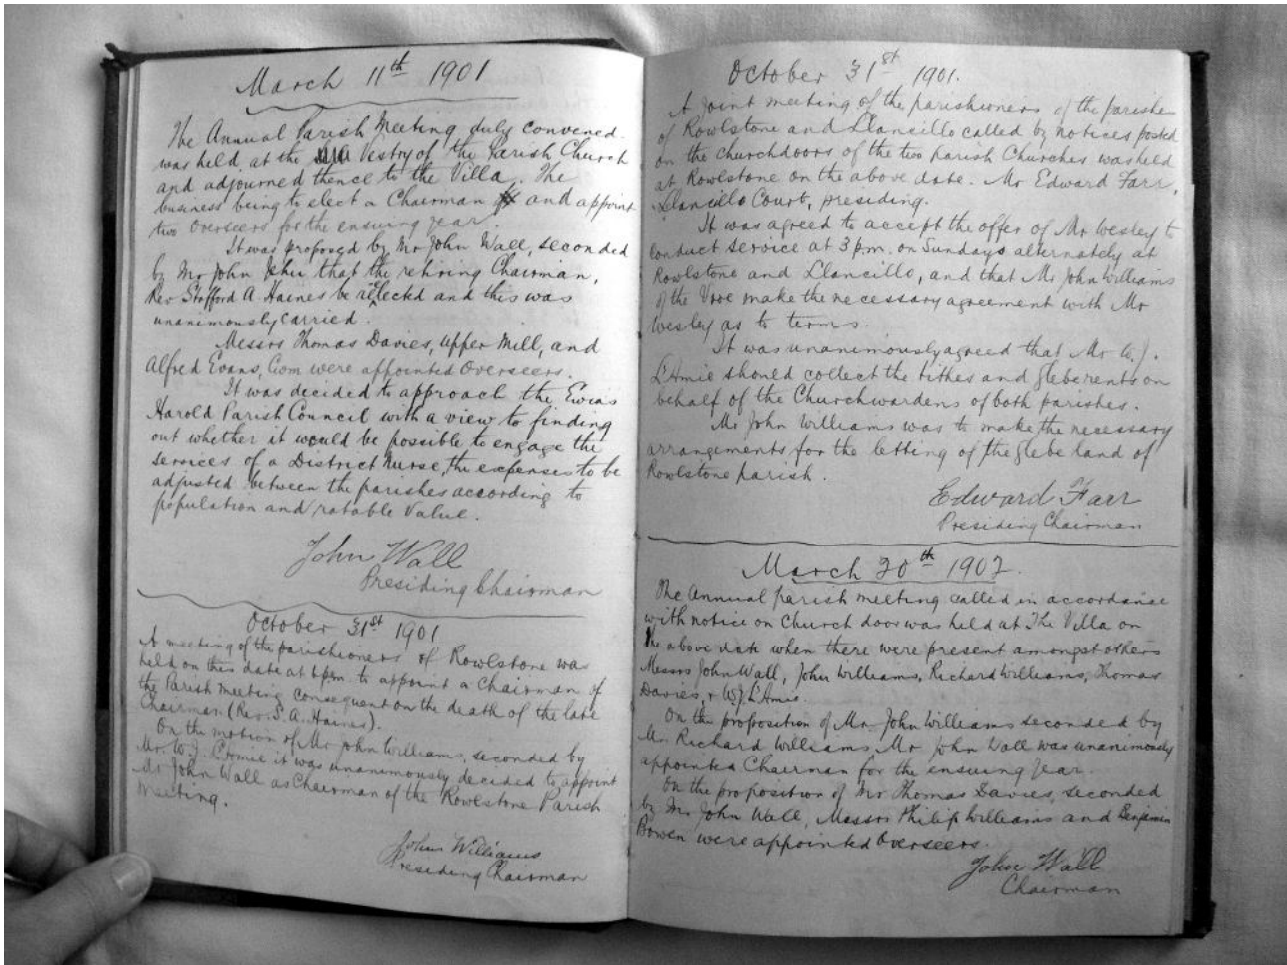 March 11th 1901
The Annual Parish Meeting duly convened
was held at the Vestry of the Parish Church
and adjourned thence to the Villa. The
business being to elect a Chairman and appoint
two Overseers for the ensuing year.
It was proposed by Mr John Wall, seconded
by Mr John Jehu that the retiring Chairman,
Rev Stafford A. Haines be reelected and this was
unanimously carried.
Messrs Thomas Davies, Upper Mill, and
Alfred Evans, Cwm were appointed Overseers.
It was decided to approach the Ewias
Harold Parish Council with a view to finding
out whether it would be possible to engage the
services of a District Nurse, the expenses to be
adjusted between the parishes according to
population and ratable value.
John Wall
Presiding Chairman
October 31st 1901
A meeting of the parishioners of Rowlstone was
held on this date at 6 pm to appoint a Chairman of
the Parish Meeting consequent on the death of the late
Chairman (Rev. S. A. Haines).
On the motion of Mr John Williams, seconded by
Mr. W. J. L'Amie it was unanimously decided to appoint
Mr John Wall as Chairman of the Rowlstone Parish
Meeting.
John Williams
Presiding Chairman
October 31st 1901.
A joint meeting of the parishioners of the parishe
of Rowlstone and Llancillo called by notices posted
on the church doors of the two parish Churches was held
at Rowlstone on the above date. Mr Edward Farr,
Llancillo Court, presiding.
It was agreed to accept the offer of Mr Wesley to
conduct service at 3 p.m. on Sundays alternately at
Rowlstone and Llancillo, and that Mr John Williams
of the Vroe make the necessary agreement with Mr
Wesley as to terms.
It was unanimously agreed that Mr W. J.
L'Amie should collect the tithes and glebe rents on
behalf of the Churchwardens of both parishes.
Mr John Williams was to make the necessary
arrangements for the letting of the glebe land of
Rowlstone parish.
Edward Farr
Presiding Chairman
March 20th 1902.
The Annual parish meeting called in accordance
with notice on Church door was held at The Villa on
the above date when there were present amongst others
Messrs John Wall, John Williams, Richard Williams, Thomas
Davies, & W. J. L'Amie.
On the proposition of Mr John Williams seconded by
Mr Richard Williams Mr John Wall was unanimously
appointed Chairman for the ensuing year.
On the proposition of Mr Thomas Davies, seconded
by Mr John Wall, Messrs Philip Williams and Benjamin
Bowen were appointed Overseers.
John Wall
Chairman